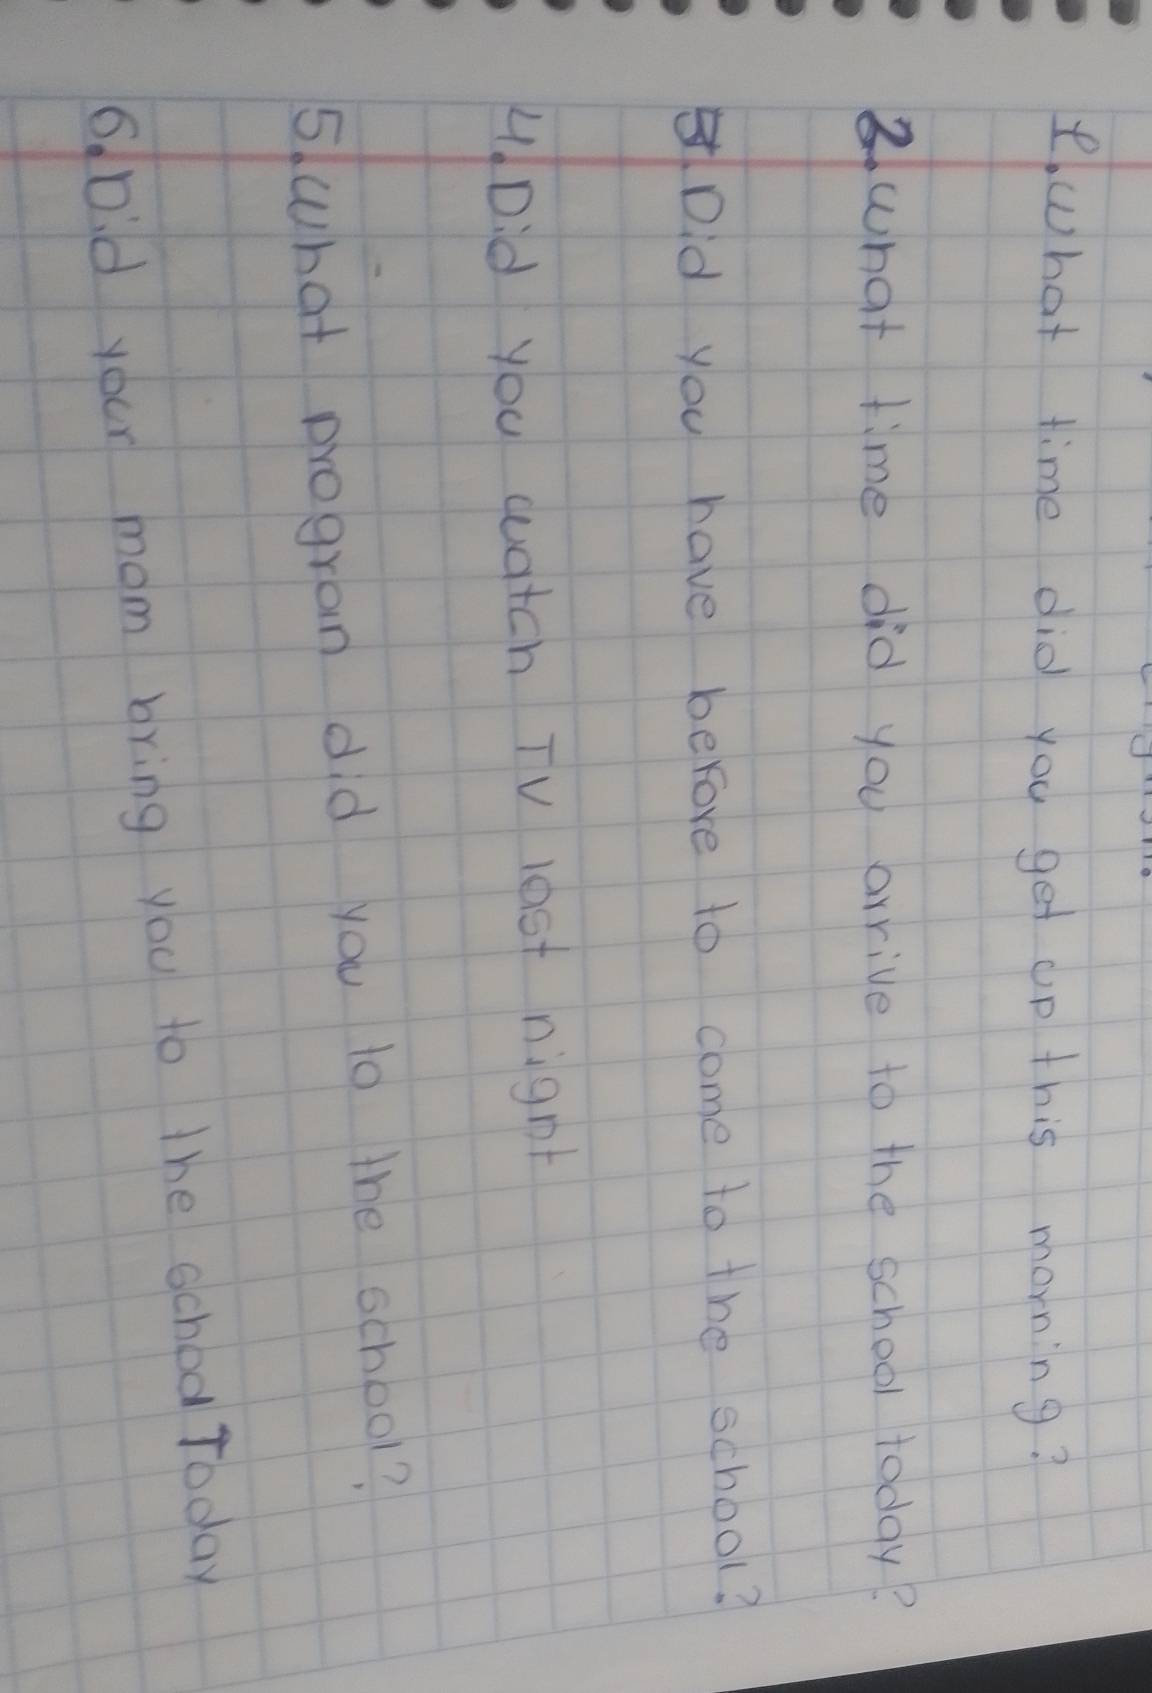 1. What time did you get up this morning?
2. What time did you arrive to the school today?
3. Did you have before to come to the school?
4. Did you watch TV last night
5. What progran did you to the school?
6. Did your mom bring you to the school Today